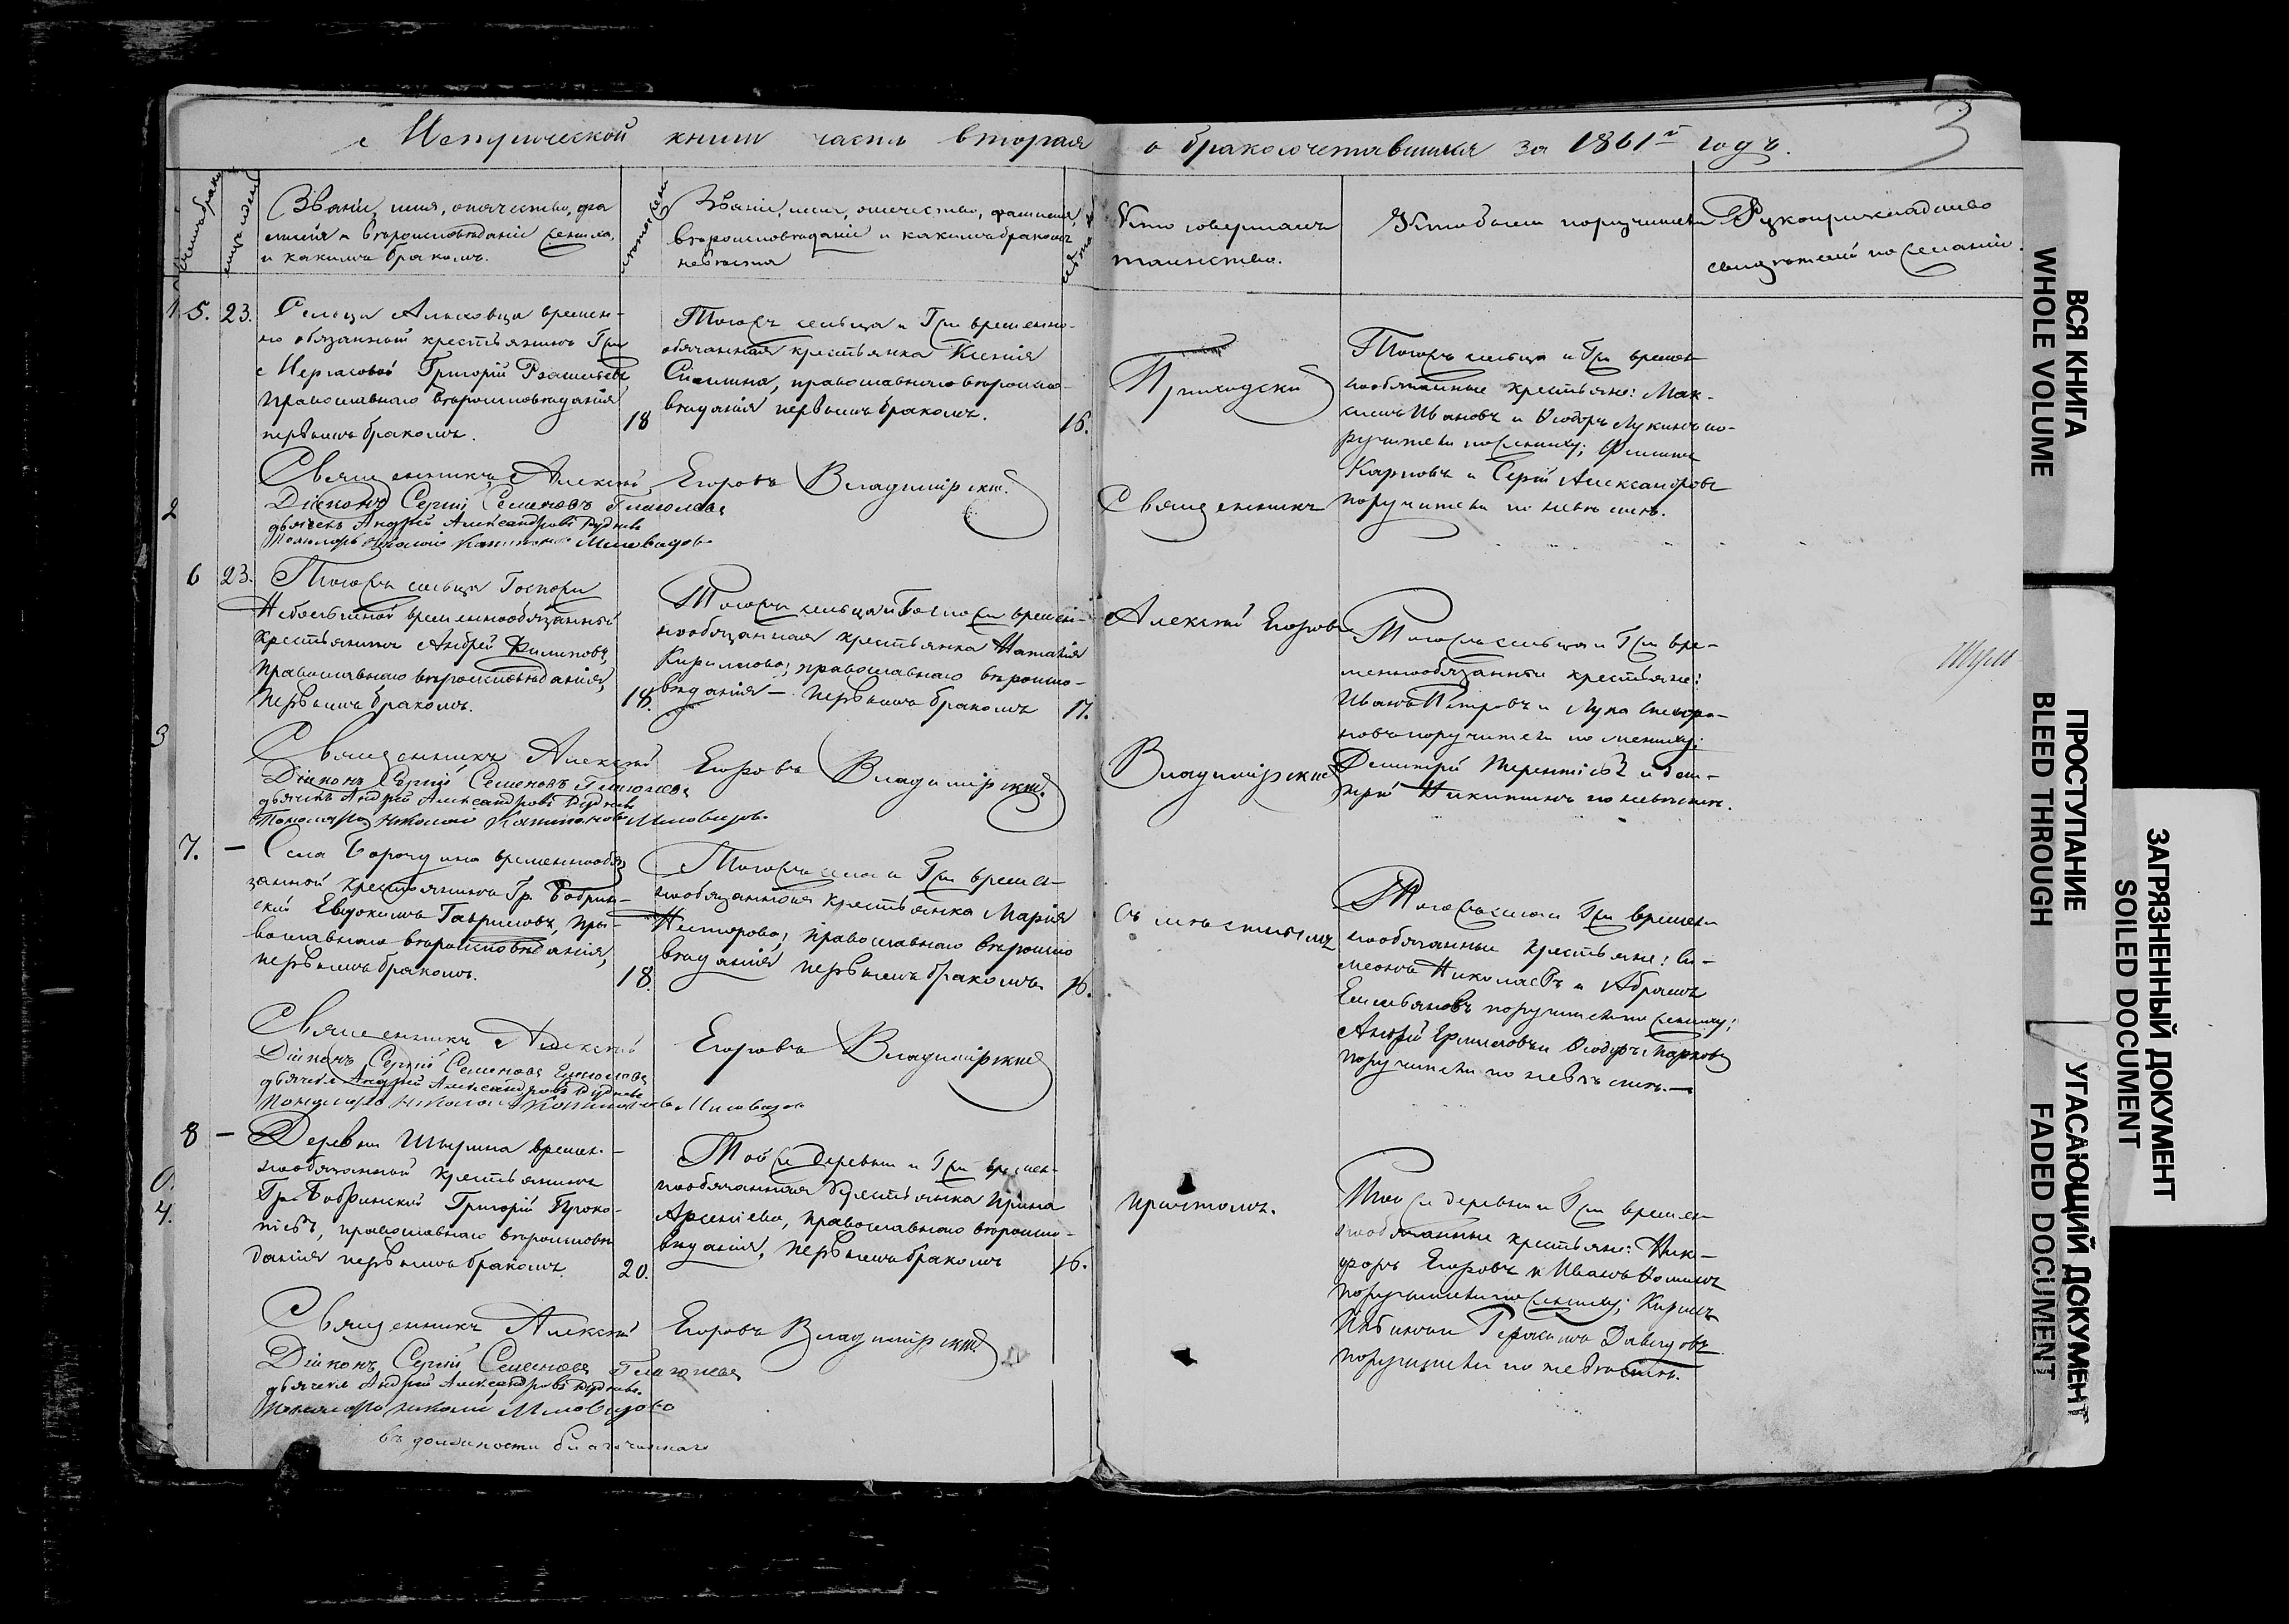 Метрической книги часть вторая о бракосочетавшихся за 1861й годъ.
3
Званіе, имя, отечество, фа
милія и вѣроисповѣданіе жениха,
и какимъ бракомъ.
Званіе, имя, отечество, фамилія,
вѣроисповѣданіе и какимъ бракомъ
невѣста
Кто совершалъ
таинство.
Кто были поручители
Рукоприкладство
свидѣтелей по желанію.
5. 23.
Сельца временно
обязанный крестьянинъ Гжи
Григорій
православнаго вѣроисповѣданія
первымъ бракомъ.
18
Тогожъ сельца и Гжи временно-
обязанная крестьянка Ксенія
православнаго вѣроиспо-
вѣданія первымъ бракомъ.
16.
Приходскій
Тогожъ сельца и Гжи времен-
нообязанные крестьяне: Мак-
симъ Ивановъ и Ѳеодоръ Лукинъ по-
ручители по женихѣ; Филиппъ
Карповъ и Сергій Александровъ
поручители по невѣстѣ.
Священникъ Алексій Егоровъ Владимірскій.
Діаконъ Сергій Семеновъ Глаголевъ
дьячекъ Андрей Александровъ Рудневъ
Пономарь Николай Миловидовъ
Священникъ
6 23.
Тогожъ сельца Госпожи
временнообязанный
крестьянинъ Андрей Филиповъ,
православнаго вѣроисповѣданія,
первымъ бракомъ.
18.
Тогожъ сельца и Госпожи времен-
нообязанная крестьянка Наталія
Кирилова, православнаго вѣроиспо-
вѣданія — первымъ бракомъ
17.
Алексій Егоровъ
Тогожъ сельца и Гжи вре-
меннообязанные крестьяне:
Иванъ Петровъ и Лука
поручители по женихѣ;
Димитрій Терентіевъ и
Никитинъ по невѣстѣ.
Священникъ Алексій Егоровъ Владимірскій.
Діаконъ Сергій Семеновъ Глаголевъ
дьячекъ Андрей Александровъ Рудневъ
Пономарь Николай Миловидовъ
Владимірскій
7. —
Села временнообя
занной крестьянинъ Гр. Бобрин-
скій Евдокимъ Гавриловъ, пра-
вославнаго вѣроисповѣданія,
первымъ бракомъ.
18.
Тогожъ села и Гжи времен-
нообязанная крестьянка Марія
православнаго вѣроиспо
вѣданія первымъ бракомъ.
16.
съ мѣстнымъ
Тогожъ села и Гжи времен
нообязанные крестьяне: Си-
меонъ Николаевъ и Абрамъ
Емельяновъ поручители по женихѣ;
Андрей Ермиловъ и Ѳеодоръ Марковъ
поручители по невѣстѣ. —
Священникъ Алексій Егоровъ Владимірскій
Діаконъ Сергій Семеновъ Глаголевъ
дьячекъ Андрей Александровъ Рудневъ
Пономарь Николай Миловидовъ
8 —
Деревни времен-
нообязанный крестьянинъ
Гр. Бобринскій Григорій Проко-
піевъ, православнаго вѣроисповѣ
данія первымъ бракомъ.
20.
Той же деревни и Гжи времен-
нообязанная крестьянка Ирина
Арсеніева, православнаго вѣроиспо-
вѣданія, первымъ бракомъ
16.
причтомъ.
Той же деревни и Гжи времен-
нообязанные крестьяне: Ник-
форъ Егоровъ и Иванъ Ѳоминъ
поручители по женихѣ; Кирилъ
Герасимъ Давыдовъ
поручители по невѣстѣ.
Священникъ Алексій Егоровъ Владимірскій
Діаконъ Сергій Семеновъ Глаголевъ
дьячекъ Андрей Александровъ Рудневъ.
Пономарь Николай Миловидовъ
въ должности благочиннаго
ВСЯ КНИГА
WHOLE VOLUME
ПРОСТУПАНИЕ
BLEED THROUGH
ЗАГРЯЗНЕННЫЙ ДОКУМЕНТ
SOILED DOCUMENT
УГАСАЮЩИЙ ДОКУМЕНТ
FADED DOCUMENT